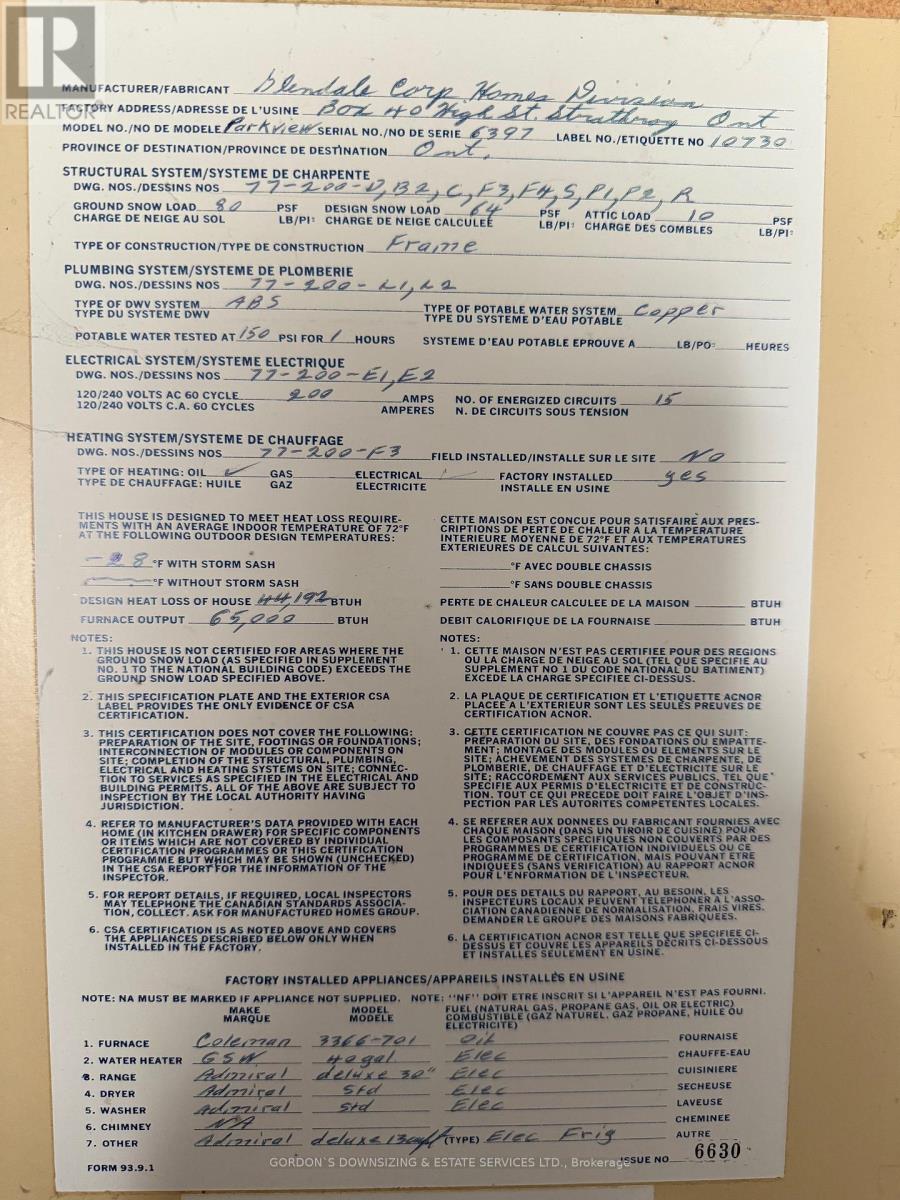 REALTOR®
MANUFACTURER/FABRICANT Glendale Corp Homes Division
FACTORY ADDRESS/ADRESSE DE L'USINE Box 40 High St. Strathroy Ont
MODEL NO./NO DE MODELE Parkview SERIAL NO./NO DE SERIE 6397 LABEL NO./ETIQUETTE NO 10730
PROVINCE OF DESTINATION/PROVINCE DE DESTINATION Ont.
STRUCTURAL SYSTEM/SYSTEME DE CHARPENTE
DWG. NOS./DESSINS NOS 77-200-D, B2, C, F3, F4, S, P1, P2, R
GROUND SNOW LOAD 80 PSF DESIGN SNOW LOAD 64 PSF ATTIC LOAD 10 PSF
CHARGE DE NEIGE AU SOL LB/PI² CHARGE DE NEIGE CALCULEE LB/PI² CHARGE DES COMBLES LB/PI²
TYPE OF CONSTRUCTION/TYPE DE CONSTRUCTION Frame
PLUMBING SYSTEM/SYSTEME DE PLOMBERIE
DWG. NOS./DESSINS NOS 77-200-L1, L2
TYPE OF DWV SYSTEM ABS TYPE OF POTABLE WATER SYSTEM Copper
TYPE DU SYSTEME DWV TYPE DU SYSTEME D'EAU POTABLE
POTABLE WATER TESTED AT 150 PSI FOR 1 HOURS SYSTEME D'EAU POTABLE EPROUVE A LB/PO² HEURES
ELECTRICAL SYSTEM/SYSTEME ELECTRIQUE
DWG. NOS./DESSINS NOS 77-200-E1, E2
120/240 VOLTS AC 60 CYCLE 200 AMPS NO. OF ENERGIZED CIRCUITS 15
120/240 VOLTS C.A. 60 CYCLES AMPERES N. DE CIRCUITS SOUS TENSION
HEATING SYSTEM/SYSTEME DE CHAUFFAGE
DWG. NOS./DESSINS NOS 77-200-F3 FIELD INSTALLED/INSTALLE SUR LE SITE No
TYPE OF HEATING: OIL ✓ GAS ELECTRICAL FACTORY INSTALLED yes
TYPE DE CHAUFFAGE: HUILE GAZ ELECTRICITE INSTALLE EN USINE
THIS HOUSE IS DESIGNED TO MEET HEAT LOSS REQUIRE-
MENTS WITH AN AVERAGE INDOOR TEMPERATURE OF 72°F
AT THE FOLLOWING OUTDOOR DESIGN TEMPERATURES:
-28 °F WITH STORM SASH
°F WITHOUT STORM SASH
DESIGN HEAT LOSS OF HOUSE 44,192 BTUH
FURNACE OUTPUT 65,000 BTUH
CETTE MAISON EST CONCUE POUR SATISFAIRE AUX PRES-
CRIPTIONS DE PERTE DE CHALEUR A LA TEMPERATURE
INTERIEURE MOYENNE DE 72°F ET AUX TEMPERATURES
EXTERIEURES DE CALCUL SUIVANTES:
°F AVEC DOUBLE CHASSIS
°F SANS DOUBLE CHASSIS
PERTE DE CHALEUR CALCULEE DE LA MAISON BTUH
DEBIT CALORIFIQUE DE LA FOURNAISE BTUH
NOTES:
1. THIS HOUSE IS NOT CERTIFIED FOR AREAS WHERE THE
GROUND SNOW LOAD (AS SPECIFIED IN SUPPLEMENT
NO. 1 TO THE NATIONAL BUILDING CODE) EXCEEDS THE
GROUND SNOW LOAD SPECIFIED ABOVE.
2. THIS SPECIFICATION PLATE AND THE EXTERIOR CSA
LABEL PROVIDES THE ONLY EVIDENCE OF CSA
CERTIFICATION.
3. THIS CERTIFICATION DOES NOT COVER THE FOLLOWING:
PREPARATION OF THE SITE, FOOTINGS OR FOUNDATIONS;
INTERCONNECTION OF MODULES OR COMPONENTS ON
SITE; COMPLETION OF THE STRUCTURAL, PLUMBING,
ELECTRICAL AND HEATING SYSTEMS ON SITE; CONNEC-
TION TO SERVICES AS SPECIFIED IN THE ELECTRICAL AND
BUILDING PERMITS. ALL OF THE ABOVE ARE SUBJECT TO
INSPECTION BY THE LOCAL AUTHORITY HAVING
JURISDICTION.
4. REFER TO MANUFACTURER'S DATA PROVIDED WITH EACH
HOME (IN KITCHEN DRAWER) FOR SPECIFIC COMPONENTS
OR ITEMS WHICH ARE NOT COVERED BY INDIVIDUAL
CERTIFICATION PROGRAMMES OR THIS CERTIFICATION
PROGRAMME BUT WHICH MAY BE SHOWN (UNCHECKED)
IN THE CSA REPORT FOR THE INFORMATION OF THE
INSPECTOR.
5. FOR REPORT DETAILS, IF REQUIRED, LOCAL INSPECTORS
MAY TELEPHONE THE CANADIAN STANDARDS ASSOCIA-
TION, COLLECT. ASK FOR MANUFACTURED HOMES GROUP.
6. CSA CERTIFICATION IS AS NOTED ABOVE AND COVERS
THE APPLIANCES DESCRIBED BELOW ONLY WHEN
INSTALLED IN THE FACTORY.
NOTES:
1. CETTE MAISON N'EST PAS CERTIFIEE POUR DES REGIONS
OU LA CHARGE DE NEIGE AU SOL (TEL QUE SPECIFIE AU
SUPPLEMENT NO 1 DU CODE NATIONAL DU BATIMENT)
EXCEDE LA CHARGE SPECIFIEE CI-DESSUS.
2. LA PLAQUE DE CERTIFICATION ET L'ETIQUETTE ACNOR
PLACEE A L'EXTERIEUR SONT LES SEULES PREUVES DE
CERTIFICATION ACNOR.
3. CETTE CERTIFICATION NE COUVRE PAS CE QUI SUIT:
PREPARATION DU SITE, DES FONDATIONS OU EMPATTE-
MENT; MONTAGE DES MODULES OU ELEMENTS SUR LE
SITE; ACHEVEMENT DES SYSTEMES DE CHARPENTE, DE
PLOMBERIE, DE CHAUFFAGE ET D'ELECTRICITE SUR LE
SITE; RACCORDEMENT AUX SERVICES PUBLICS, TEL QUE
SPECIFIE AUX PERMIS D'ELECTRICITE ET DE CONSTRUC-
TION. TOUT CE QUI PRECEDE DOIT FAIRE L'OBJET D'INS-
PECTION PAR LES AUTORITES COMPETENTES LOCALES.
4. SE REFERER AUX DONNEES DU FABRICANT FOURNIES AVEC
CHAQUE MAISON (DANS UN TIROIR DE CUISINE) POUR
LES COMPOSANTS SPECIFIQUES NON COUVERTS PAR DES
PROGRAMMES DE CERTIFICATION INDIVIDUELS OU CE
PROGRAMME DE CERTIFICATION, MAIS POUVANT ETRE
INDIQUEES (SANS VERIFICATION) AU RAPPORT ACNOR
POUR L'ENFORMATION DE L'INSPECTEUR.
5. POUR DES DETAILS DU RAPPORT, AU BESOIN, LES
INSPECTEURS LOCAUX PEUVENT TELEPHONER A L'ASSO-
CIATION CANADIENNE DE NORMALISATION, FRAIS VIRES.
DEMANDER LE GROUPE DES MAISONS FABRIQUEES.
6. LA CERTIFICATION ACNOR EST TELLE QUE SPECIFIEE CI-
DESSUS ET COUVRE LES APPAREILS DECRITS CI-DESSOUS
ET INSTALLES SEULEMENT EN USINE.
FACTORY INSTALLED APPLIANCES/APPAREILS INSTALLES EN USINE
NOTE: NA MUST BE MARKED IF APPLIANCE NOT SUPPLIED. NOTE: "NF" DOIT ETRE INSCRIT SI L'APPAREIL N'EST PAS FOURNI.
MAKE MODEL FUEL (NATURAL GAS, PROPANE GAS, OIL OR ELECTRIC)
MARQUE MODELE COMBUSTIBLE (GAZ NATUREL, GAZ PROPANE, HUILE OU
ELECTRICITE)
1. FURNACE Coleman 3366-701 Oil FOURNAISE
2. WATER HEATER GSW 40 gal Elec CHAUFFE-EAU
3. RANGE Admiral deluxe 30" Elec CUISINIERE
4. DRYER Admiral Std Elec SECHEUSE
5. WASHER Admiral Std Elec LAVEUSE
6. CHIMNEY NA CHEMINEE
7. OTHER Admiral deluxe 13 cu ft (TYPE) Elec Frig AUTRE
FORM 93.9.1 ISSUE NO. 6630
GORDON`S DOWNSIZING & ESTATE SERVICES LTD., Brokerage